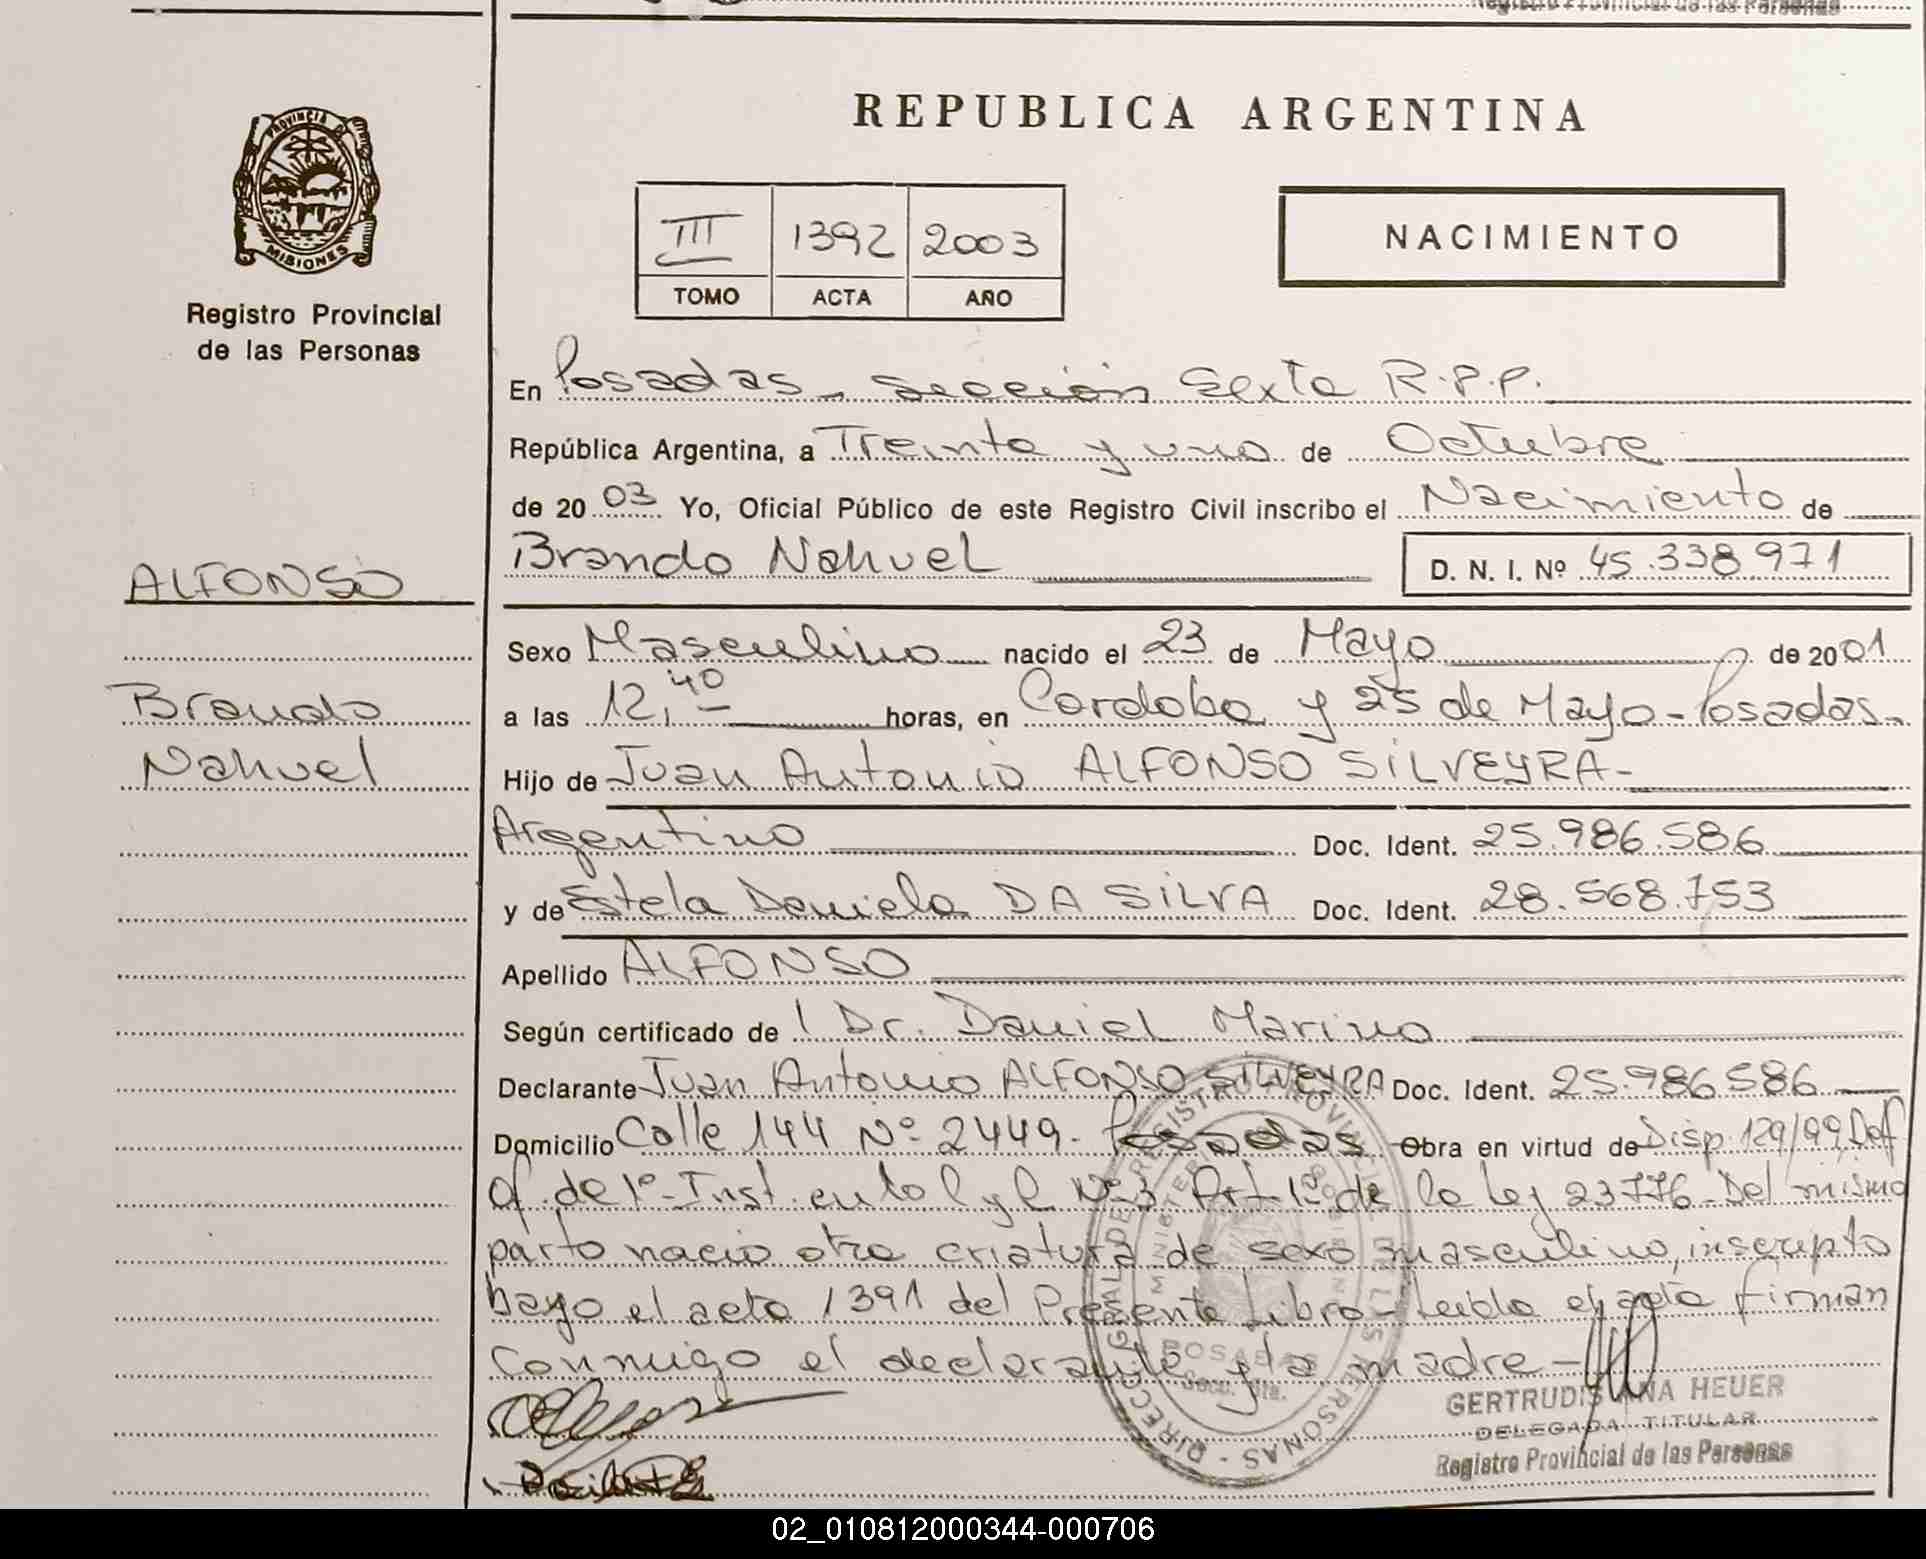 Registro Provincial de las Personas
PROVINCIA DE
MISIONES
Registro Provincial
de las Personas
REPUBLICA ARGENTINA
III 1392 2003
TOMO ACTA AÑO
NACIMIENTO
En Posadas, sección Sexta R.P.P.
República Argentina, a Treinta y uno de Octubre
de 2003 Yo, Oficial Público de este Registro Civil inscribo el Nacimiento de
Brando Nahuel D. N. I. Nº 45.338.971
ALFONSO
Sexo Masculino nacido el 23 de Mayo de 2001
Brando
a las 12,40 horas, en Cordoba y 25 de Mayo - Posadas.
Nahuel
Hijo de Juan Antonio ALFONSO SILVEYRA-
Argentino Doc. Ident. 25.986.586
y de Estela Daniela DA SILVA Doc. Ident. 28.568.753
Apellido ALFONSO
Según certificado de l Dr. Daniel Marino
Declarante Juan Antonio ALFONSO SILVEYRA Doc. Ident. 25.986.586
Domicilio Calle 144 Nº 2449- Posadas Obra en virtud de Disp. 129/99, Def
Of. de 1º Inst. en lo C y C Nº 3 Art 1º de la Ley 23776 - Del mismo
parto nacio otra criatura de sexo masculino, inscripto
bayo el acta 1391 del Presente Libro - Leida el acta firman
conmigo el declarante y la madre -
DIRECC. GRAL DE REGISTRO PROVINCIAL DE LAS PERSONAS
POSADAS
Secc. 6ta.
GERTRUDIS ANA HEUER
DELEGADA TITULAR
Registro Provincial de las Personas
02_010812000344-000706